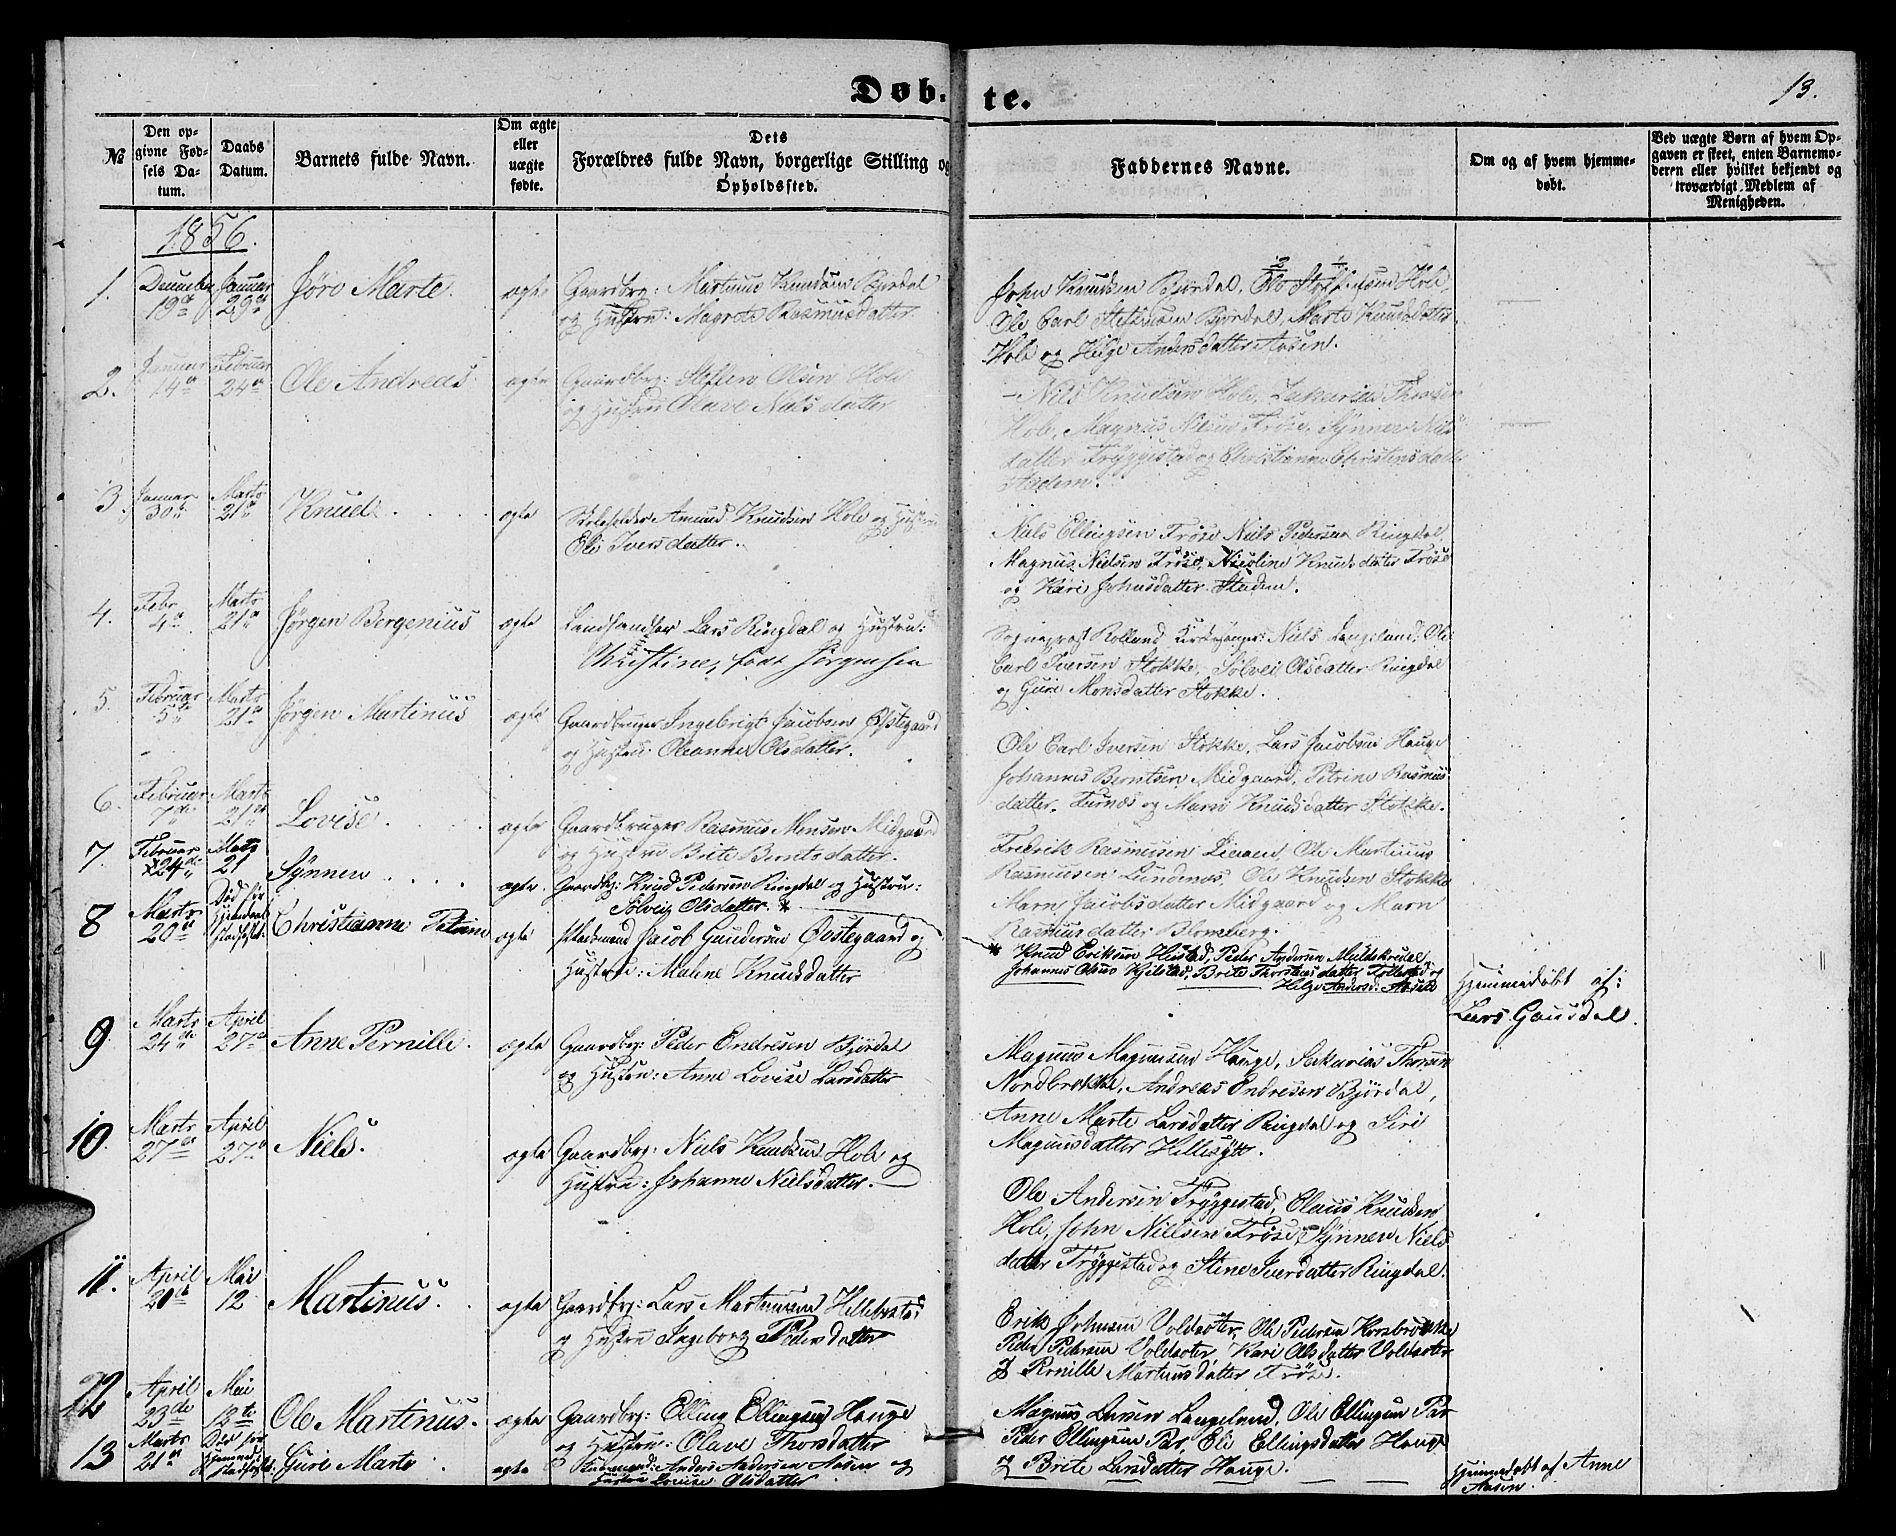 Døb-te.
13.
№
Den opgivne Fødsels Datum.
Daabs Datum.
Barnets fulde Navn.
Om ægte eller uægte fødte.
Dets Forældres fulde Navn, borgerlige Stilling og Opholdssted.
Faddernes Navne.
Om og af hvem hjemmedøbt.
Ved uægte Børn af hvem Opgaven er skeet, enten Barnemoderen eller hvilket bekjendt og troværdigt Medlem af Menigheden.
1856.
1.
December 19de
Januar 29de
Jøro Marte.
ægte
Gaardbrg: Martinus Knudsen Bjørdal
og Hustru: Magrete Rasmusdatter
John Knudsen Bjørdal, Ole Steffensen Hole,
Ole Carl Steffensen Bjørdal, Marte Knudsdatter
Hole og Helge Andersdatter Aasen.
2.
Januar 14de
Februar 24de
Ole Andreas
ægte
Gaardbrg: Steffen Olsen Hole
og Hustru Olave Nielsdatter
Nils Knudsen Hole, Sakarias Thorsen
Hole, Magnus Nielsen Frøse, Synnev Niels
datter Tryggestad og Christianne Christensdatter
Stadem.
3.
Januar 30te
Marts 21de
Knud.
ægte
Skoleholder Amund Knudsen Hole og Hustru
Eli Iversdatter.
Niels Ellingsen Frøse Niels Pedersen Ringdal,
Magnus Nielsen Frøse, Nicoline Knudsdatter Frøse
og Kari Johnsdatter Stadem.
4.
Febr 4de
Marts 21de
Jørgen Bergenius
ægte
Landhandler Lars Ringdal og Hustru:
Christine, født Jørgensen
Sognepræst Rolland Kirkesanger: Niels Langeland, Ole
Carl Iversen Stokke, Sølvei Olsdatter Ringdal
og Guri Monsdatter Stokke.
5.
Februar 5te
Marts 21de
Jørgen Martinus
ægte
Gaardbruger Ingebrigt Jacobsen Østegaard
og Hustru: Oleanna Olsdatter.
Ole Carl Iversen Stokke, Lars Jacobsen Hauge
Johannes Berntsen Midgaard, Petrine Rasmus
datter Furnes og Marn Knudsdatter Stokke.
6.
Februar 7de
Marts 21de
Lovise.
ægte
Gaardbruger Rasmus Monsen Midgaard
og Hustru Brite Berntsdatter.
Fredrik Rasmusen Lieaen, Ole Martinus
Rasmusen Lindenes, Ole Knudsen Stokke
Marn Jacobsdatter Midgaard og Marn
Rasmusdatter Blomberg.
7.
Februar 24de
Marts 21
Synnev
ægte.
Gaardbrg: Knud Pedersen Ringdal og Hustru:
Sølvei Olsdatter. *
* Knud Eriksen Hustad, Peder Andersen Muldskredal,
Johannes Olsen Kjelstad, Brite Thorstensdatter Tollerstad og
Helge Andersd: Aasen
8
Marts 20de
Død før Hjemdaab stadfæst.
Christianna Petrine
ægte
Pladsmand Jacob Gundersen Øvstegaard og
Hustru: Malene Knudsdatter
Hjemmedøbt af:
Lars Gausdal.
9.
Marts 24de
April 27de
Anne Pernille.
ægte
Gaardbrg: Peder Endresen Bjørdal
og Hustru: Anne Lovise Larsdatter
Magnus Magnusen Hauge, Sakarias Thorsen
Nordbrekke, Andreas Endresen Bjørdal,
Anne Marte Larsdatter Ringdal og Siri
Magnusdatter Hellesylt.
10.
Marts 27de
April 27de
Niels.
ægte
Gaardbrg: Niels Knudsen Hole og
Hustru: Johanne Nielsdatter.
Ole Andersen Tryggestad, Olaus Knudsen
Hole, John Nielsen Frøse, Synnev Niels
datter Tryggestad og Stine Iversdatter Ringdal.
11.
April 20de
Mai 12
Martinus.
ægte
Gaardbrg: Lars Martinusen Hellebostad
og Hustru Ingeborg Pedersdatter
Erik Johnsen Voldsæter, Ole Pedersen Korsbrekke
Peder Pedersen Voldsæter, Kari Olsdatter Voldsæter
og Pernille Martinusdatter Frøse.
12
April 23de
Mai 12te
Ole Martinus.
ægte
Gaardbrg: Elling Ellingsen Hauge
og Hustru: Olave Thorsdatter
Magnus Larsen Langeland, Ole Ellingsen Par
Peder Ellingsen Par, Eli Ellingsdatter Hauge
og Brite Larsdatter Hauge.
13
Marts 21de
Død før Hjemmed: stadfæst.
Guri Marte
ægte
Anders Andersen Aasen og
Hustru Lovise Olsdatter
Hjemmedøbt af Anne
Aasen.